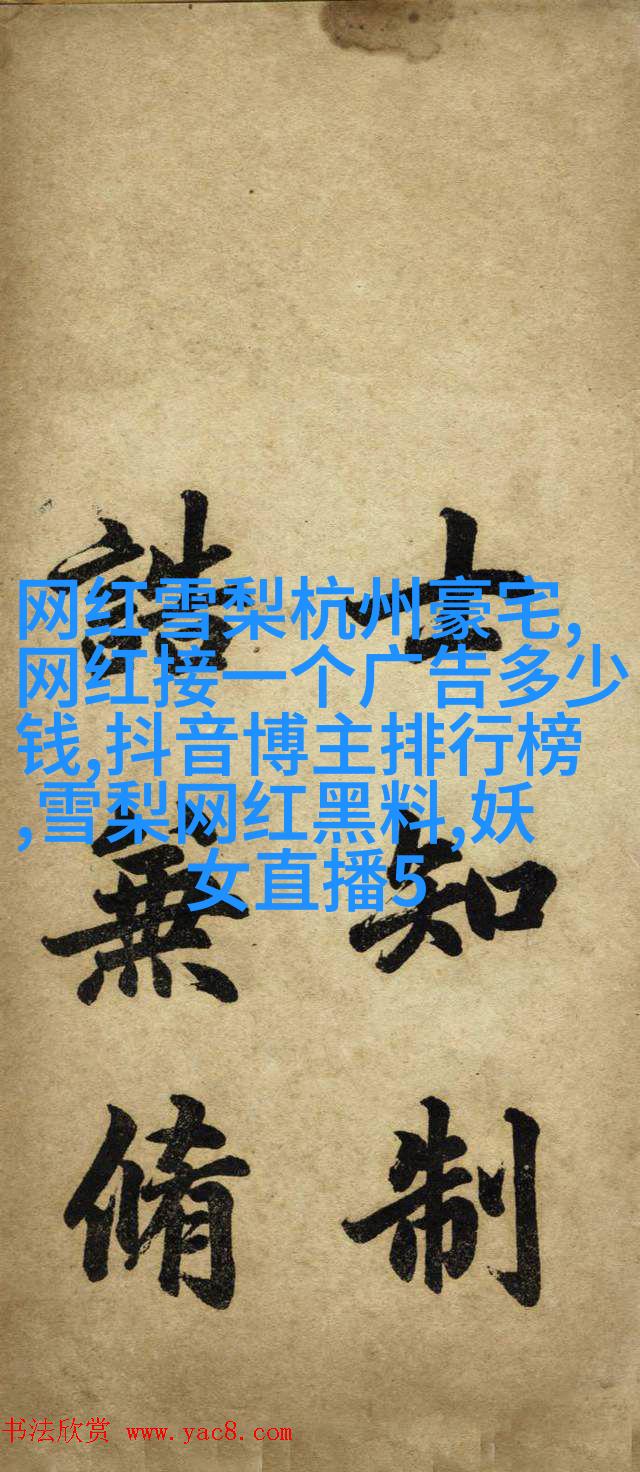 士知制
誥無脩
网红雪梨杭州豪宅,
网红接一个广告多少
钱,抖音博主排行榜
,雪梨网红黑料,妖
女直播5
书法欣赏 www.yac8.com